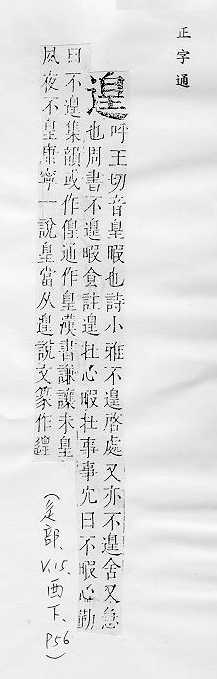 正字通
遑
呼王切音皇暇也詩小雅不遑啓處又亦不遑舍又急
也周書不遑暇食註遑在心暇在事事冗曰不暇心勤
曰不遑集韻或作偟通作皇漢書謙讓未皇
夙夜不皇康寧一說皇當从遑說文篆作遑
(辵部、V.15.酉下、P56)